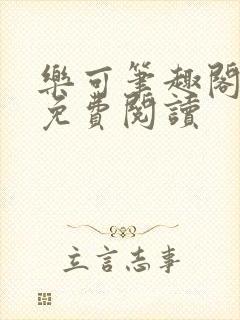 樂可筆趣閣
免費閱讀
立言志事